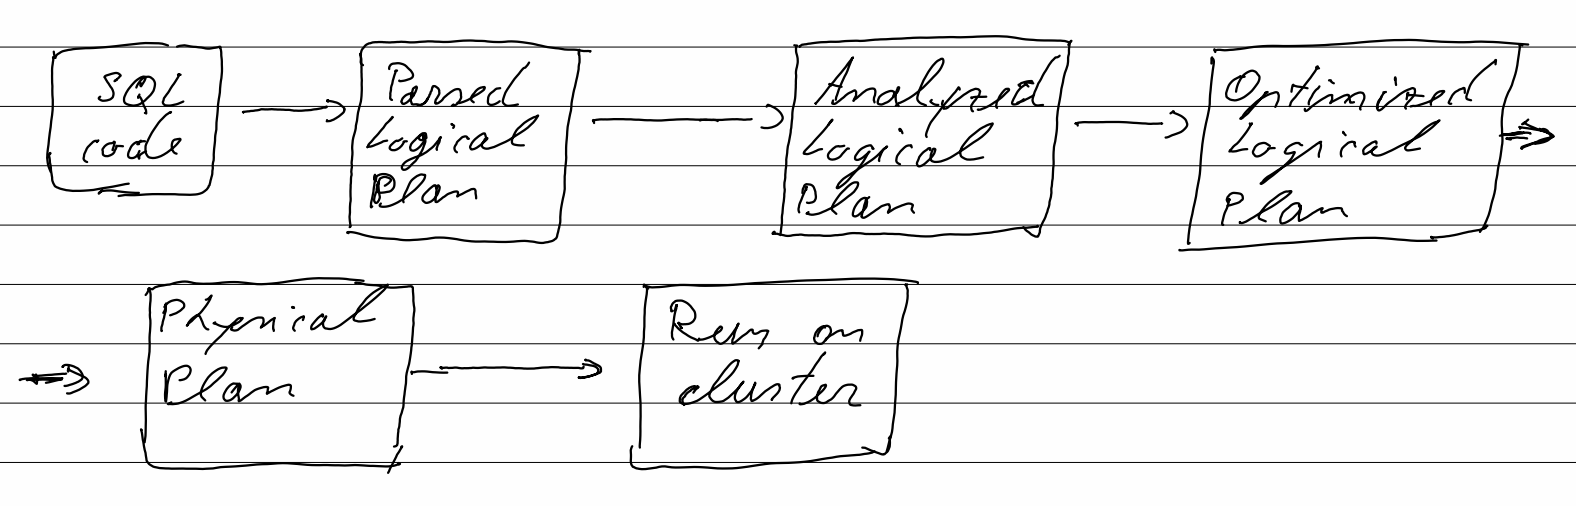 SQL
code
Parsed
Logical
Plan
Analyzed
Logical
Plan
Optimized
Logical
Plan
Physical
Plan
Run on
cluster